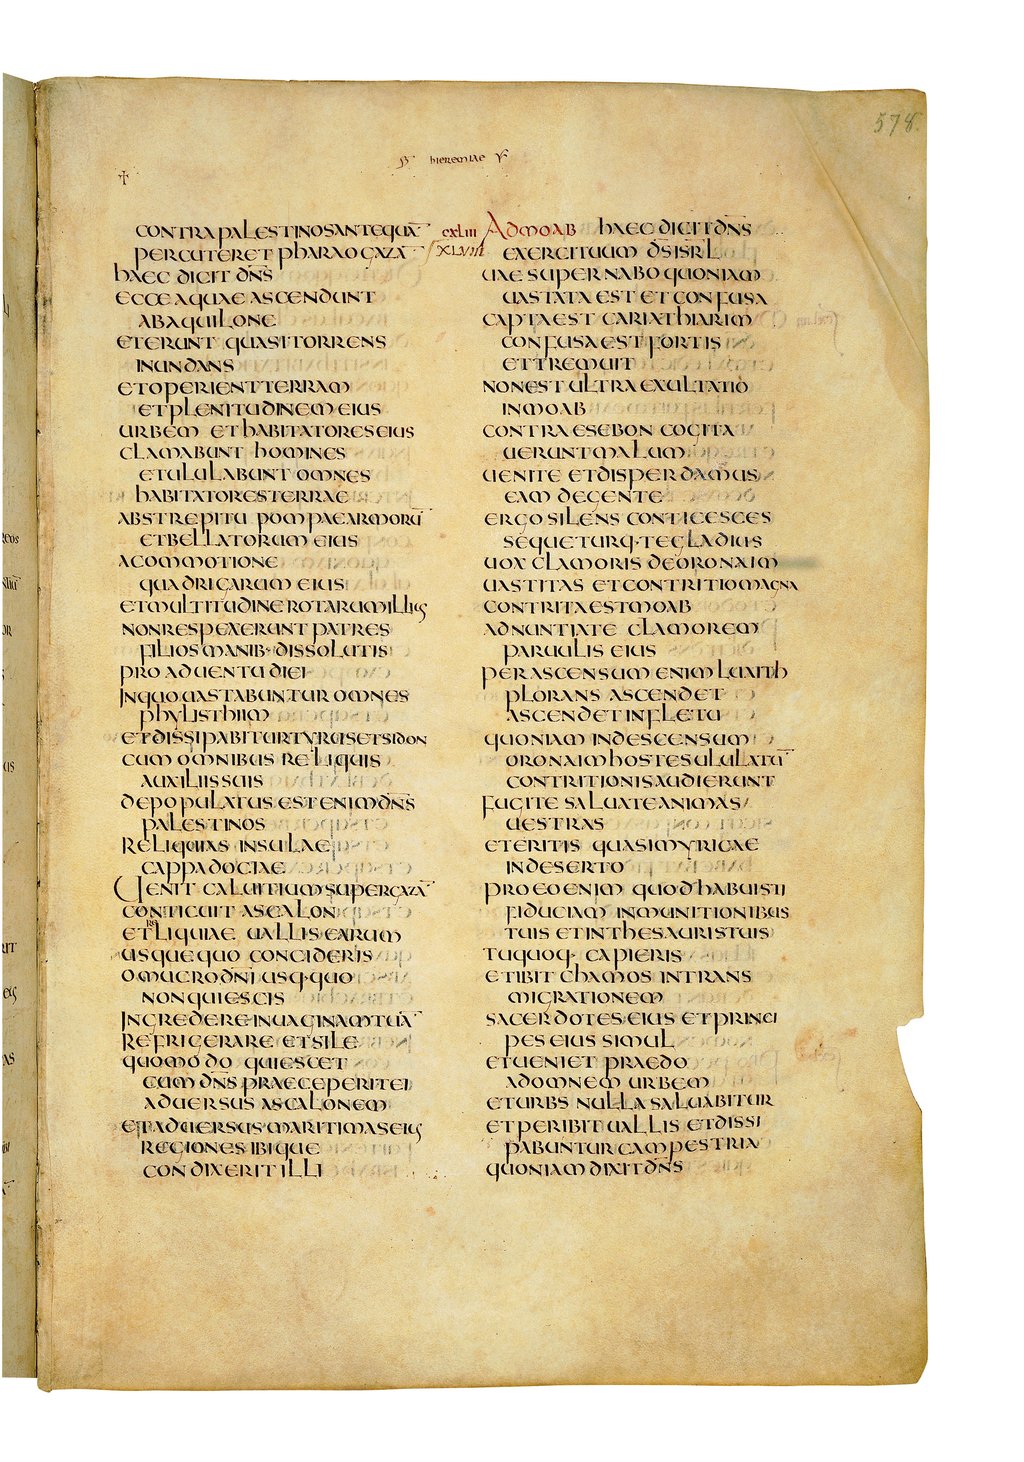 578.
hieremiae
CONTRA PALESTINOS ANTEQUĀ
PERCUTERET PHARAO GAZĀ
HAEC DICIT DN̄S
ECCE AQUAE ASCENDUNT
AB AQUILONE
ET ERUNT QUASI TORRENS
INUNDANS
ET OPERIENT TERRAM
ET PLENITUDINEM EIUS
URBEM ET HABITATORES EIUS
CLAMABUNT HOMINES
ET ULULABUNT OMNES
HABITATORES TERRAE
AB STREPITU POMPAE ARMORŪ
ET BELLATORUM EIUS
A COMMOTIONE
QUADRIGARUM EIUS
ET MULTITUDINE ROTARUM ILLIUS
NON RESPEXERUNT PATRES
FILIOS MANIB· DISSOLUTIS
PRO ADUENTU DIEI
IN QUO UASTABUNTUR OMNES
PHYLISTHIIM
ET DISSIPABITUR TYRUS ET SIDON
CUM OMNIBUS RELIQUIS
AUXILIIS SUIS
DEPOPULATUS EST ENIM DN̄S
PALESTINOS
RELIQUIAS INSULAE
CAPPADOCIAE
UENIT CALUITIUM SUPER GAZĀ
CONTICUIT ASCALON
ET RELIQUIAE UALLIS EARUM
USQUEQUO CONCIDERIS
O MUCRO DN̄I USQ·QUO
NON QUIESCIS
INGREDERE IN UAGINAM TUĀ
REFRIGERARE ET SILE
QUOMODO QUIESCET
CUM DN̄S PRAECEPERIT EI
ADUERSUS ASCALONEM
ET ADUERSUS MARITIMAS EIUS
REGIONES IBIQUE
CONDIXERIT ILLI
cxliii AD MOAB HAEC DICIT DN̄S
XLVIII EXERCITUUM D̄S ISR̄L
UAE SUPER NABO QUONIAM
UASTATA EST ET CONFUSA
CAPTA EST CARIATHIARIM
CONFUSA EST FORTIS
ET TREMUIT
NON EST ULTRA EXULTATIO
IN MOAB
CONTRA ESEBON COGITA
UERUNT MALUM
UENITE ET DISPERDAMUS
EAM DE GENTE
ERGO SILENS CONTICESCES
SEQUETURQ· TE GLADIUS
UOX CLAMORIS DE ORONAIM
UASTITAS ET CONTRITIO MAGNA
CONTRITA EST MOAB
ADNUNTIATE CLAMOREM
PARUULIS EIUS
PER ASCENSUM ENIM LUAITH
PLORANS ASCENDET
ASCENDET IN FLETU
QUONIAM IN DESCENSUM
ORONAIM HOSTES ULULATŪ
CONTRITIONIS AUDIERUNT
FUGITE SALUATE ANIMAS
UESTRAS
ET ERITIS QUASI MYRICAE
IN DESERTO
PRO EO ENIM QUOD HABUISTI
FIDUCIAM IN MUNITIONIBUS
TUIS ET IN THESAURIS TUIS
TU QUOQ· CAPIERIS
ET IBIT CHAMOS IN TRANS
MIGRATIONEM
SACERDOTES EIUS ET PRINCI
PES EIUS SIMUL
ET UENIET PRAEDO
AD OMNEM URBEM
ET URBS NULLA SALUABITUR
ET PERIBIT UALLIS ET DISSI
PABUNTUR CAMPESTRIA
QUONIAM DIXIT DN̄S